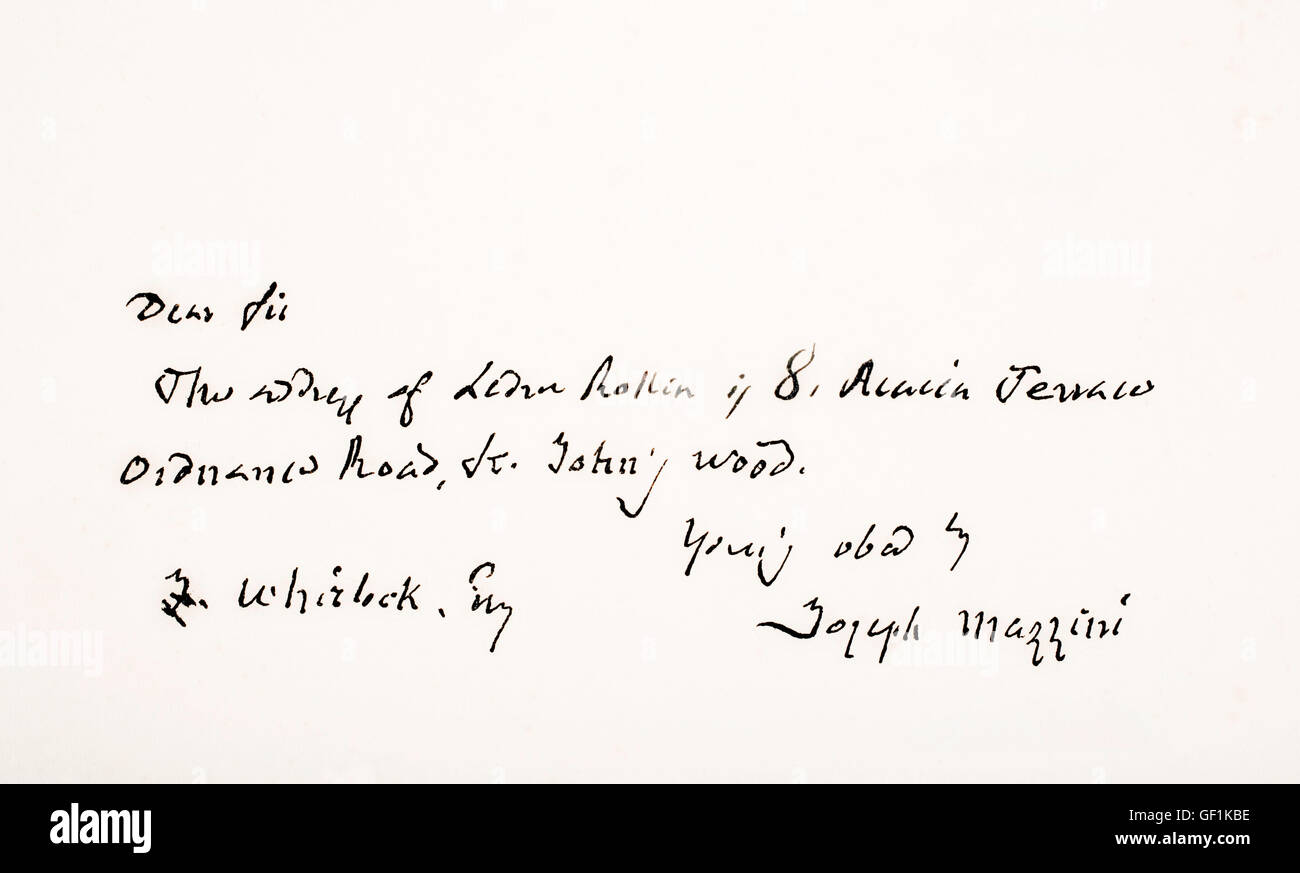 Dear Sir
The adress of Ledru Rollin is 8. Acacia Terrace
Ordnance Road, St. John's Wood.
Your's obed
Whirlock. Esq
Joseph Mazzini
alamy
alamy
alamy
alamy
alamy
a alamy
Image ID: GF1KBE
www.alamy.com